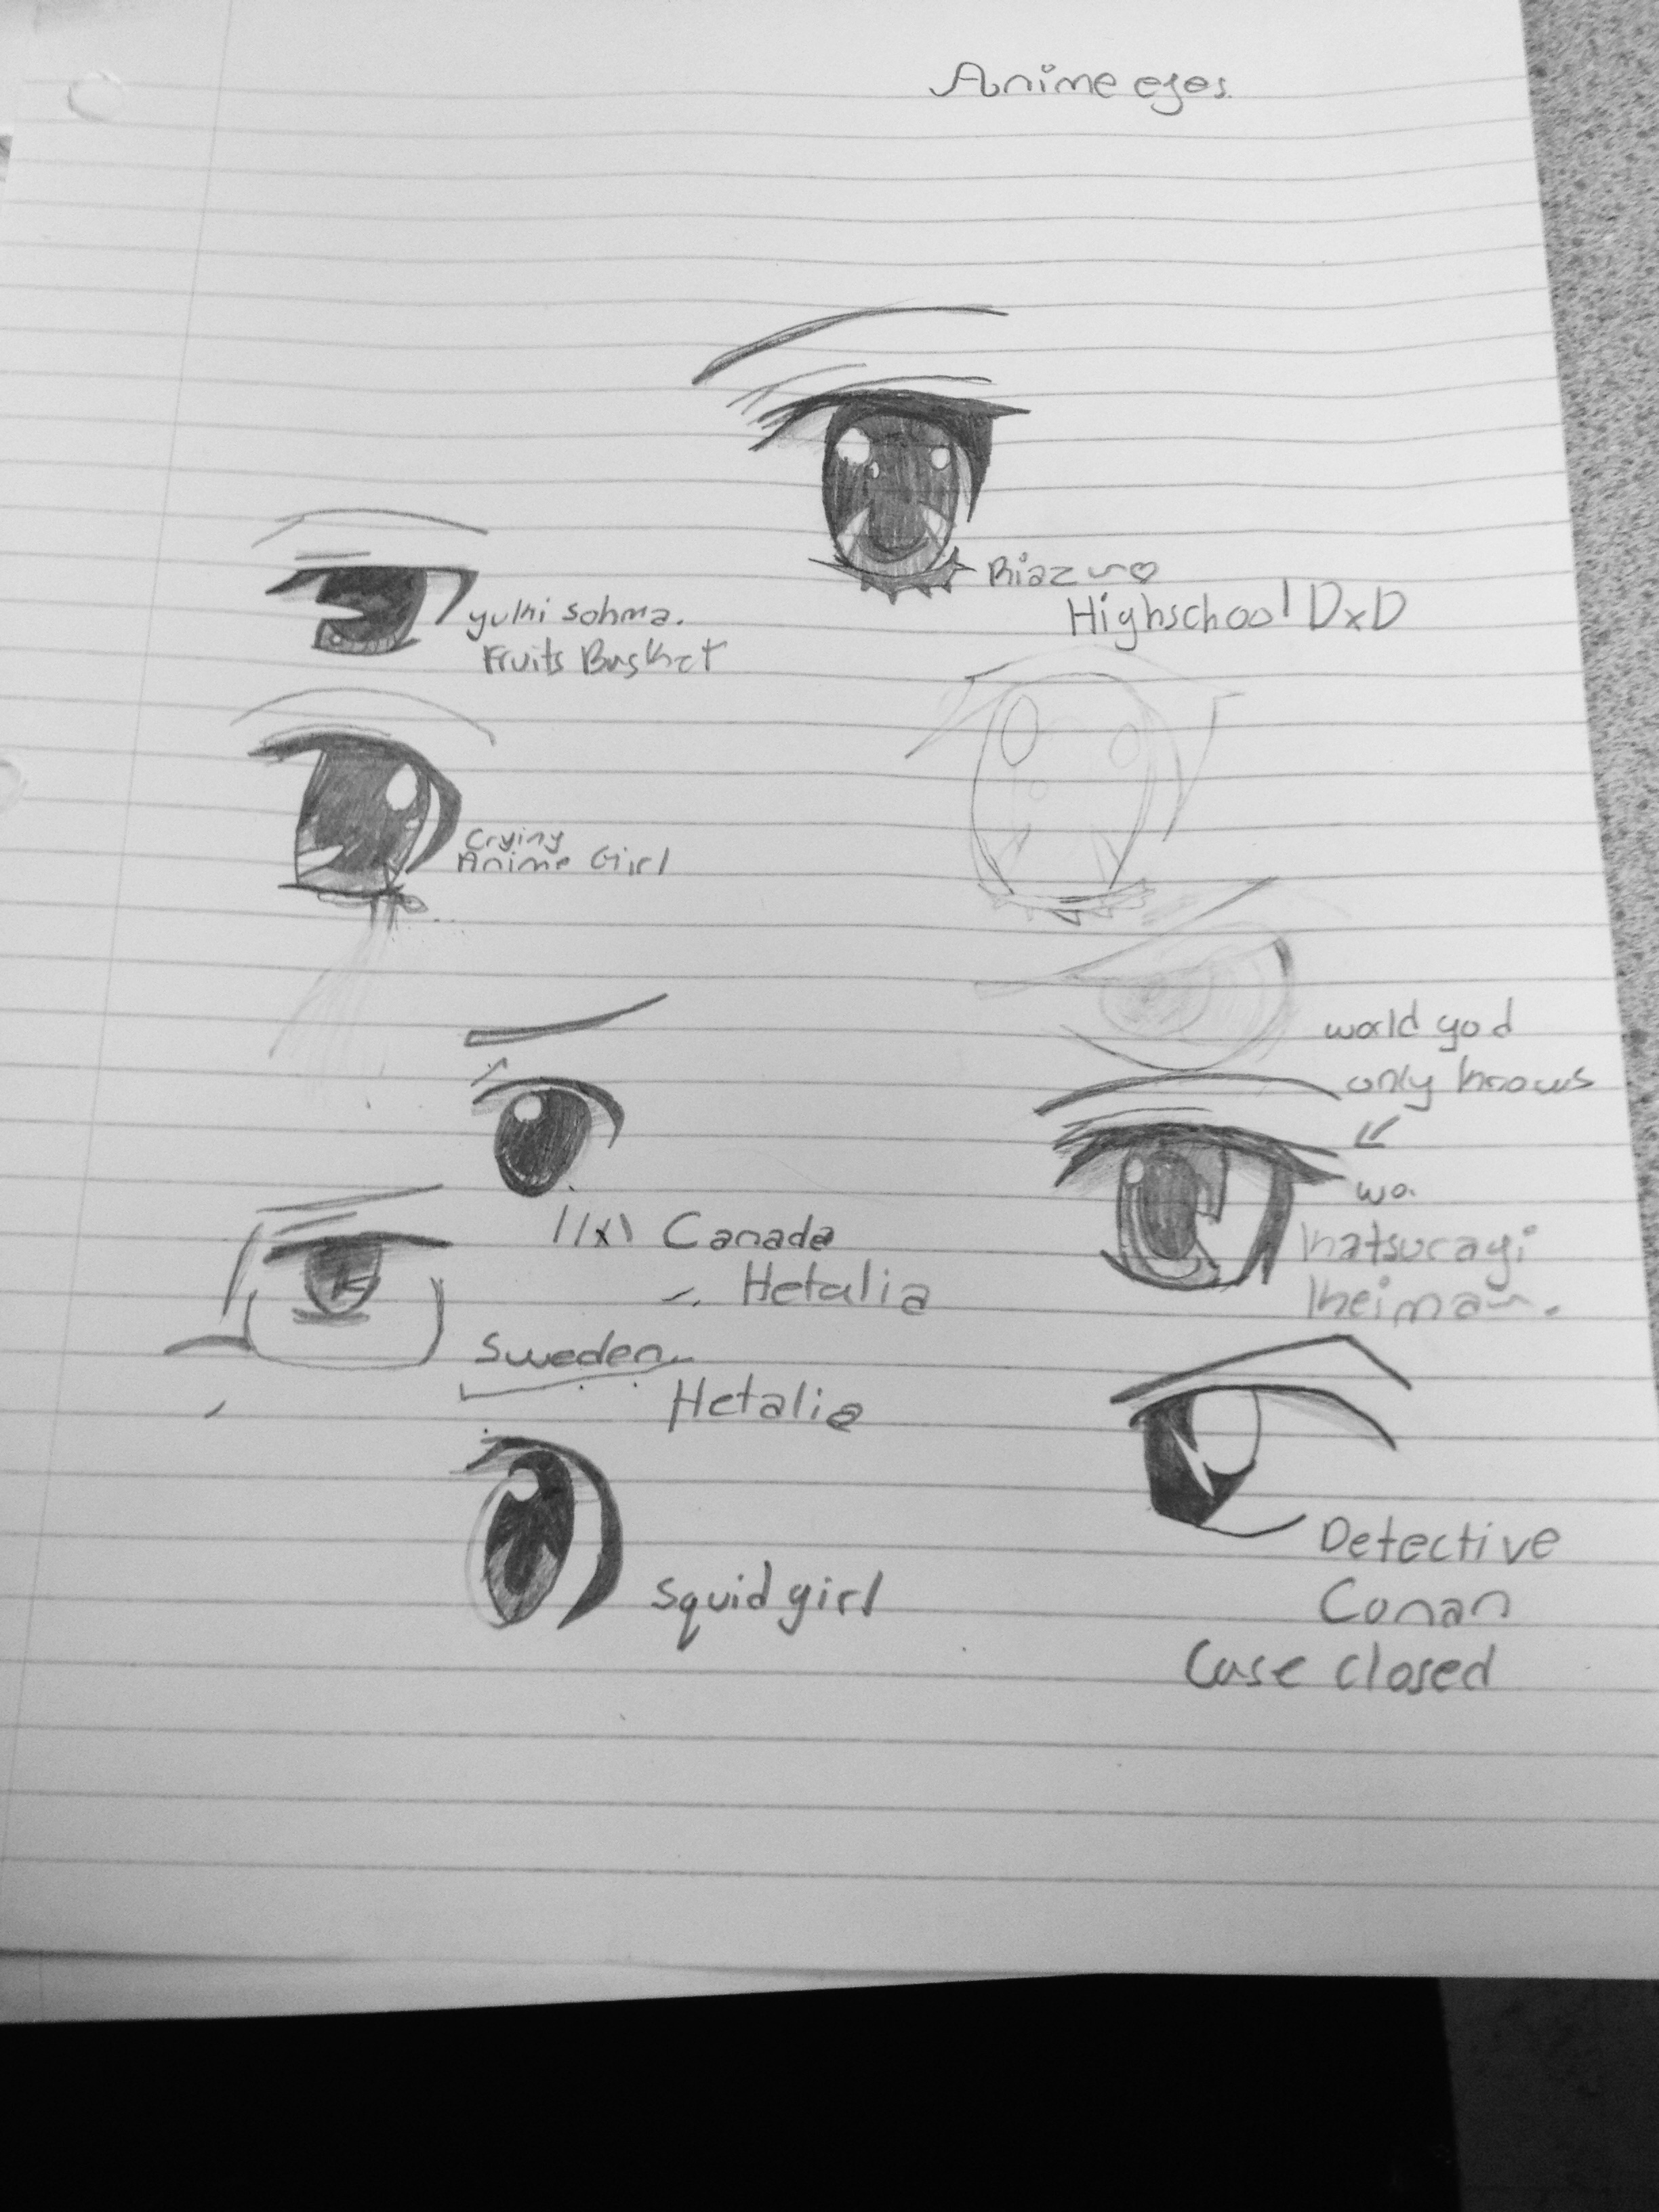 Anime eyes.
Riaz ~♡
Highschool DxD
yuki sohma.
Fruits Basket
Crying
Anime Girl
world god
only knows
wo.
Katsuragi
Keima~.
Canada
Hetalia
Sweden
Hetalia
Squid girl
Detective
Conan
Case closed